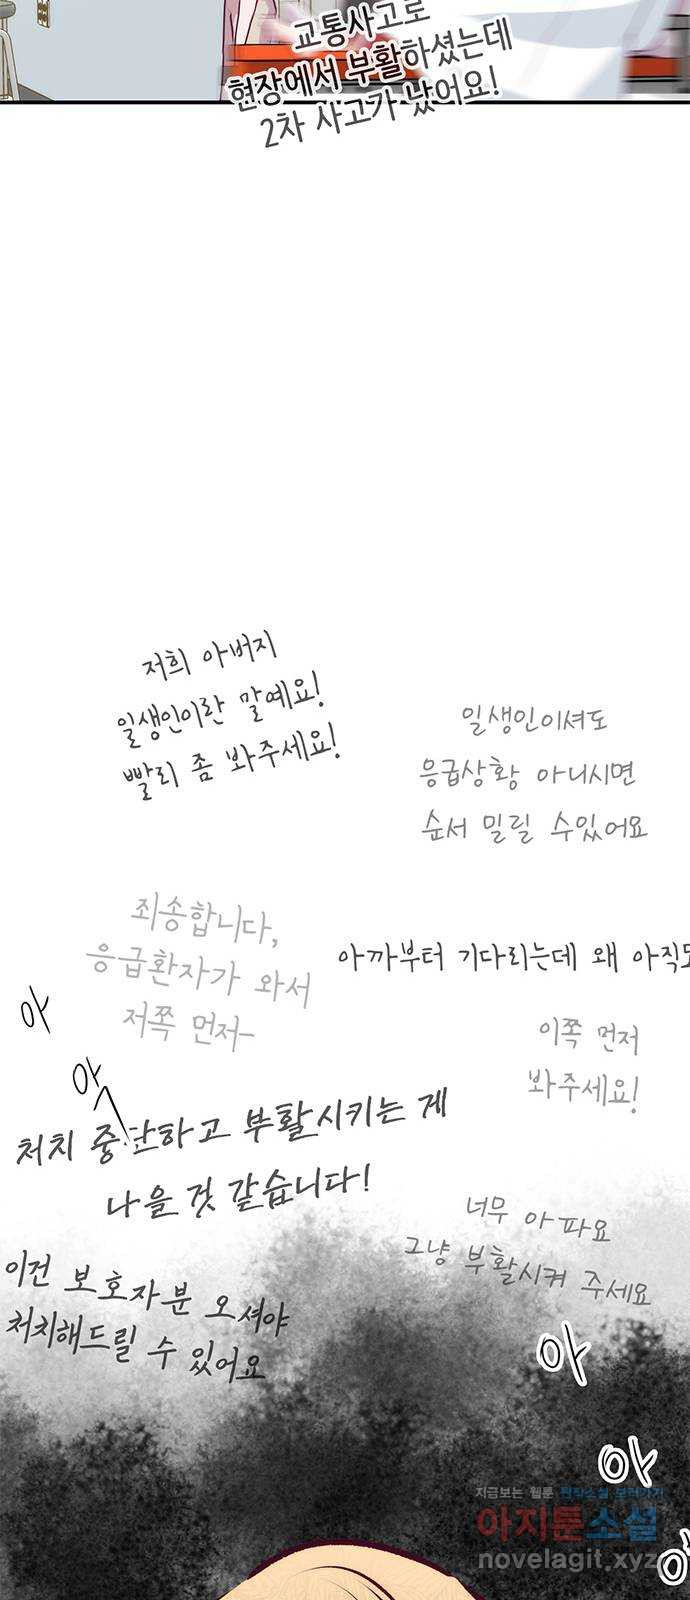 교통사고로
현장에서 부활하셨는데
2차 사고가 났어요!
저희 아버지
일생인이란 말예요!
빨리 좀 봐주세요!
일생인이셔도
응급상황 아니시면
순서 밀릴 수있어요
죄송합니다,
응급환자가 와서
저쪽 먼저-
아까부터 기다리는데 왜 아직도
이쪽 먼저
봐주세요!
아
아
처치 중단하고 부활시키는 게
나을 것 같습니다!
너무 아파요
그냥 부활시켜 주세요
이건 보호자분 오셔야
처치해드릴 수 있어요
아
아
아
지금보는 웹툰 편작소설 보러가기
아지툰소설
novelagit.xyz